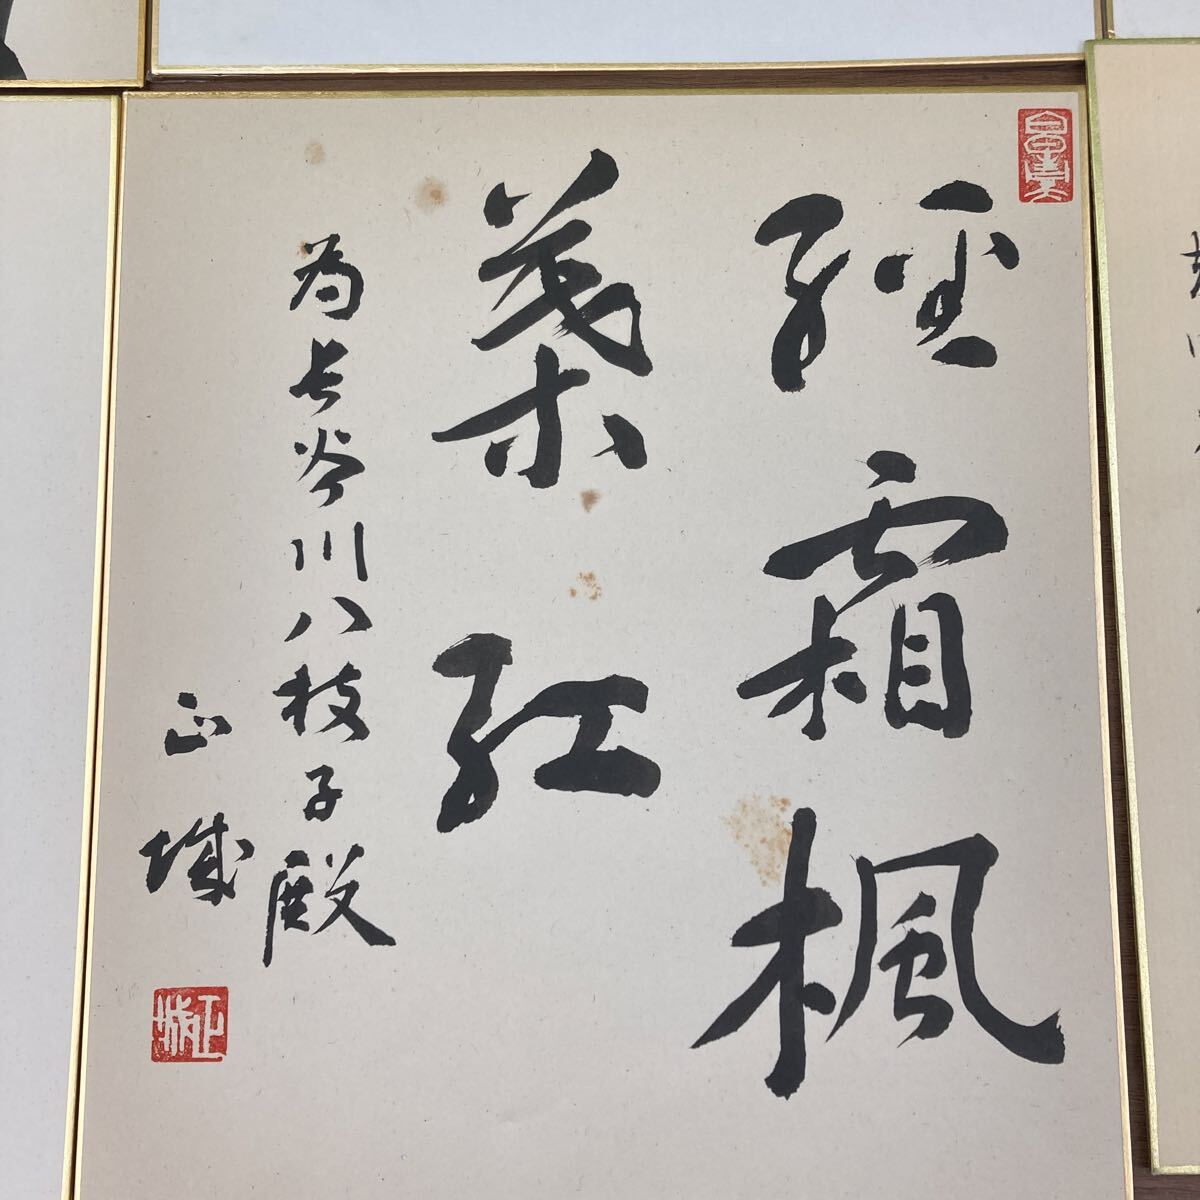 經霜楓
葉紅
為長谷川八枝子殿
正城
正城